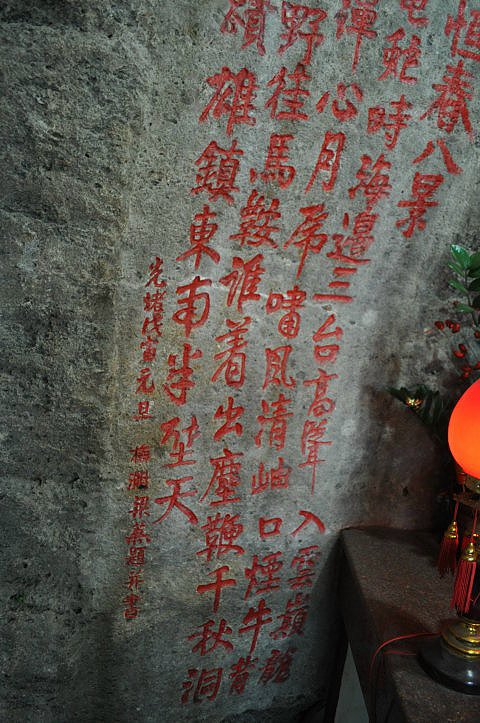 恒春八景
蛇時海邊三台高聳入雲嶺龍
潭心月虎嘯風清岫口煙牛背
野徃馬鞍誰着出塵鞭千秋洞
績雄鎮東南半壁天
光緒戊寅元旦 梁燕題并書